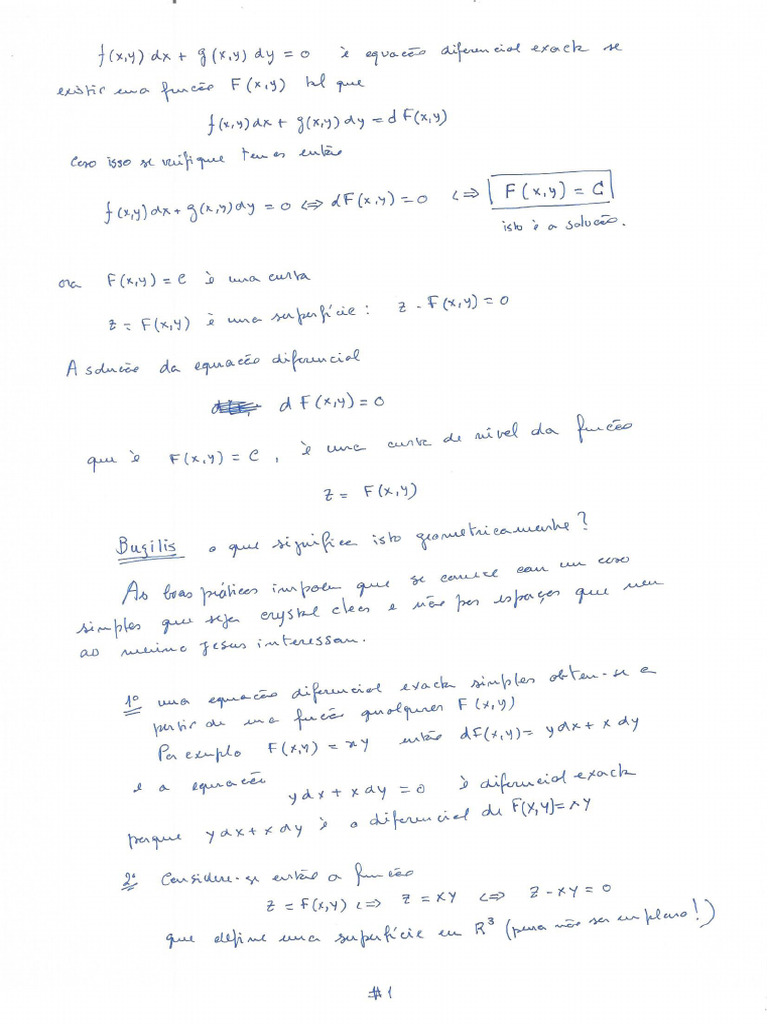 f(x,y) dx + g(x,y) dy = 0 è equacão diferencial exacta se
existir uma funcão F(x,y) tal que
f(x,y)dx + g(x,y)dy = dF(x,y)
Caso isso se verifique temos então
f(x,y)dx + g(x,y)dy = 0 <=> dF(x,y) = 0 <=> F(x,y) = C
isto è a solucão.
ora F(x,y) = C è uma curva
z = F(x,y) è uma superfície : z - F(x,y) = 0
A solucão da equacão diferencial
dF(x,y) = 0
que è F(x,y) = C , è uma curva de nível da funcão
z = F(x,y)
Busilis o que significa isto geometricamente?
As boas práticas impoem que se comece com um caso
simples que seja crystal clear e não por espaços que nem
ao menino Jesus interessam.
1º uma equacão diferencial exacta simples obtem-se a
partir de uma funcão qualquer F(x,y)
Por exemplo F(x,y) = xy então dF(x,y) = ydx + x dy
e a equacão
ydx + x dy = 0 è diferencial exacta
porque ydx + x dy è o diferencial de F(x,y) = xy
2º Considere-se então a funcão
z = F(x,y) <=> z = xy <=> z - xy = 0
que define uma superfície em R³ (pena não ser um plano!)
#1